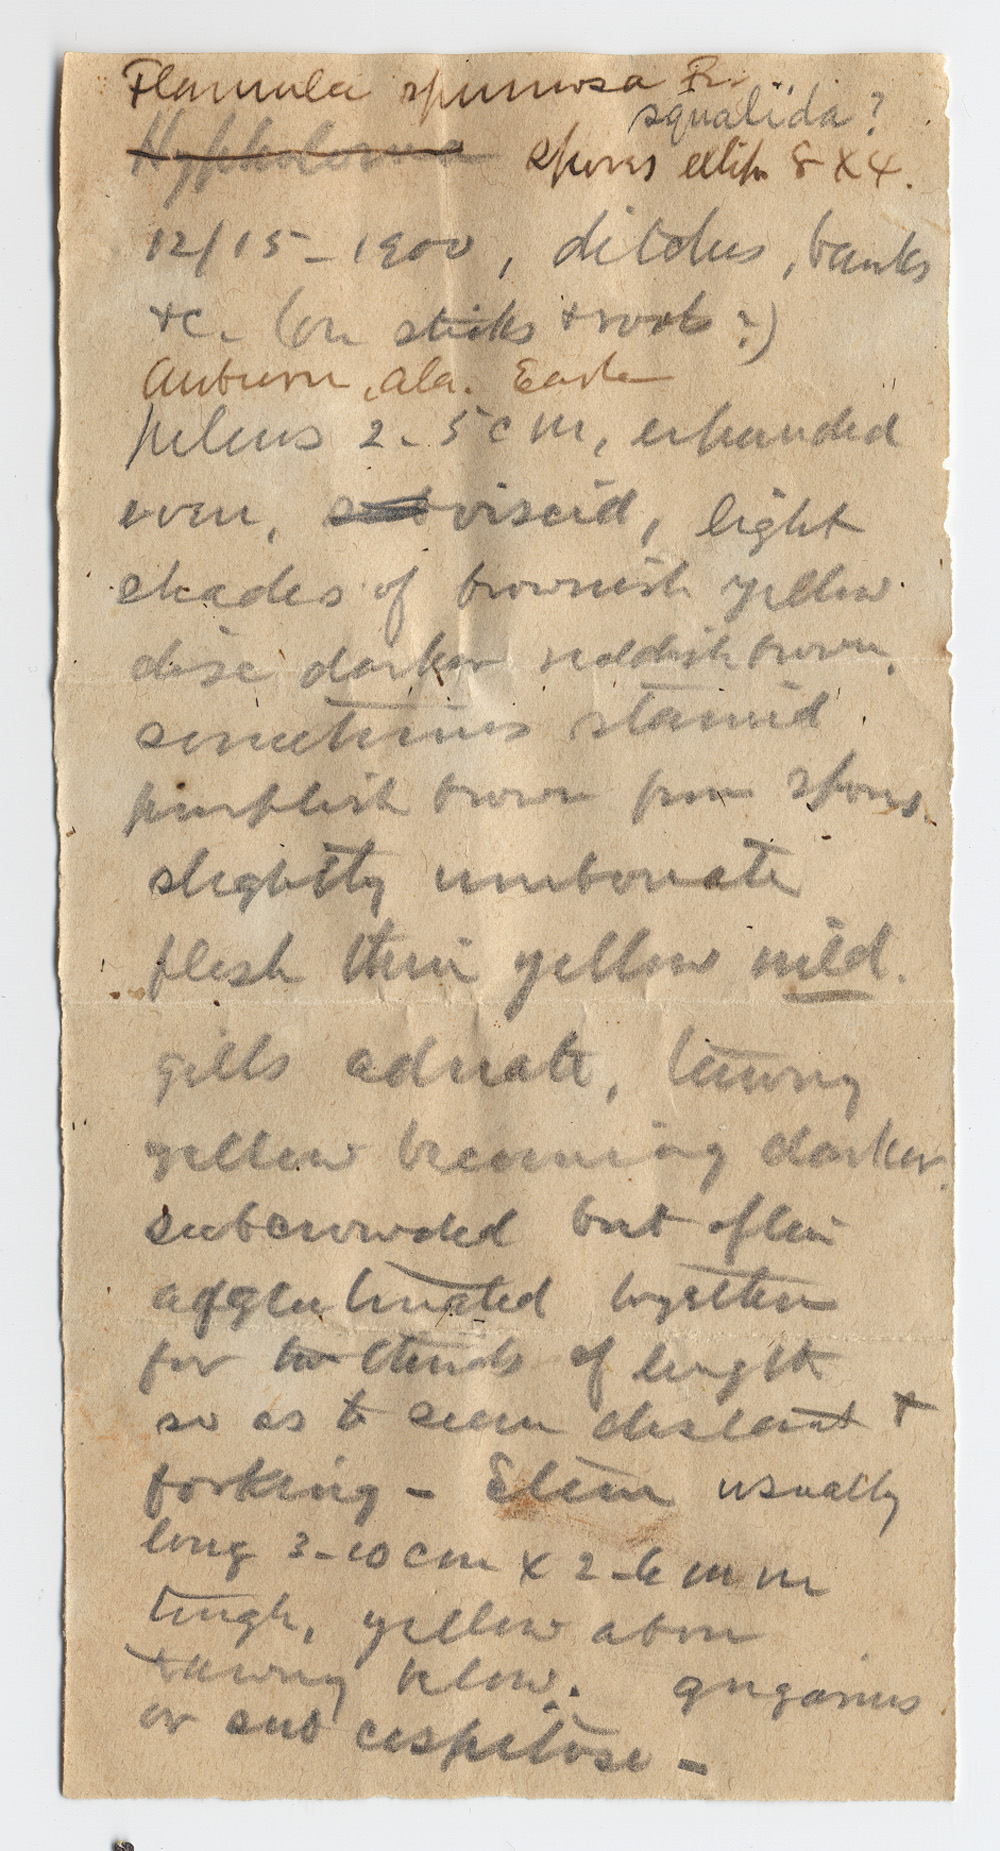 Flammula spumosa Fr.
squalida?
Hypholoma spores ellip 8 X 4.
12/15-1900, ditches, banks
+c. (on sticks + roots?)
Auburn, Ala. Earle
pileus 2-5 cm, expanded
even, viscid, light
shades of brownish yellow
disc darker reddish brown,
sometimes stained
purplish brown from spores.
slightly umbonate
flesh thin yellow mild.
gills adnate, tawny
yellow becoming darker.
subcrowded but often
agglutinated together
for two thirds of length
so as to seem distant +
forking - Stem usually
long 3-10 cm X 2-6 mm
tough, yellow above
tawny below. gregarious
or sub cespitose -